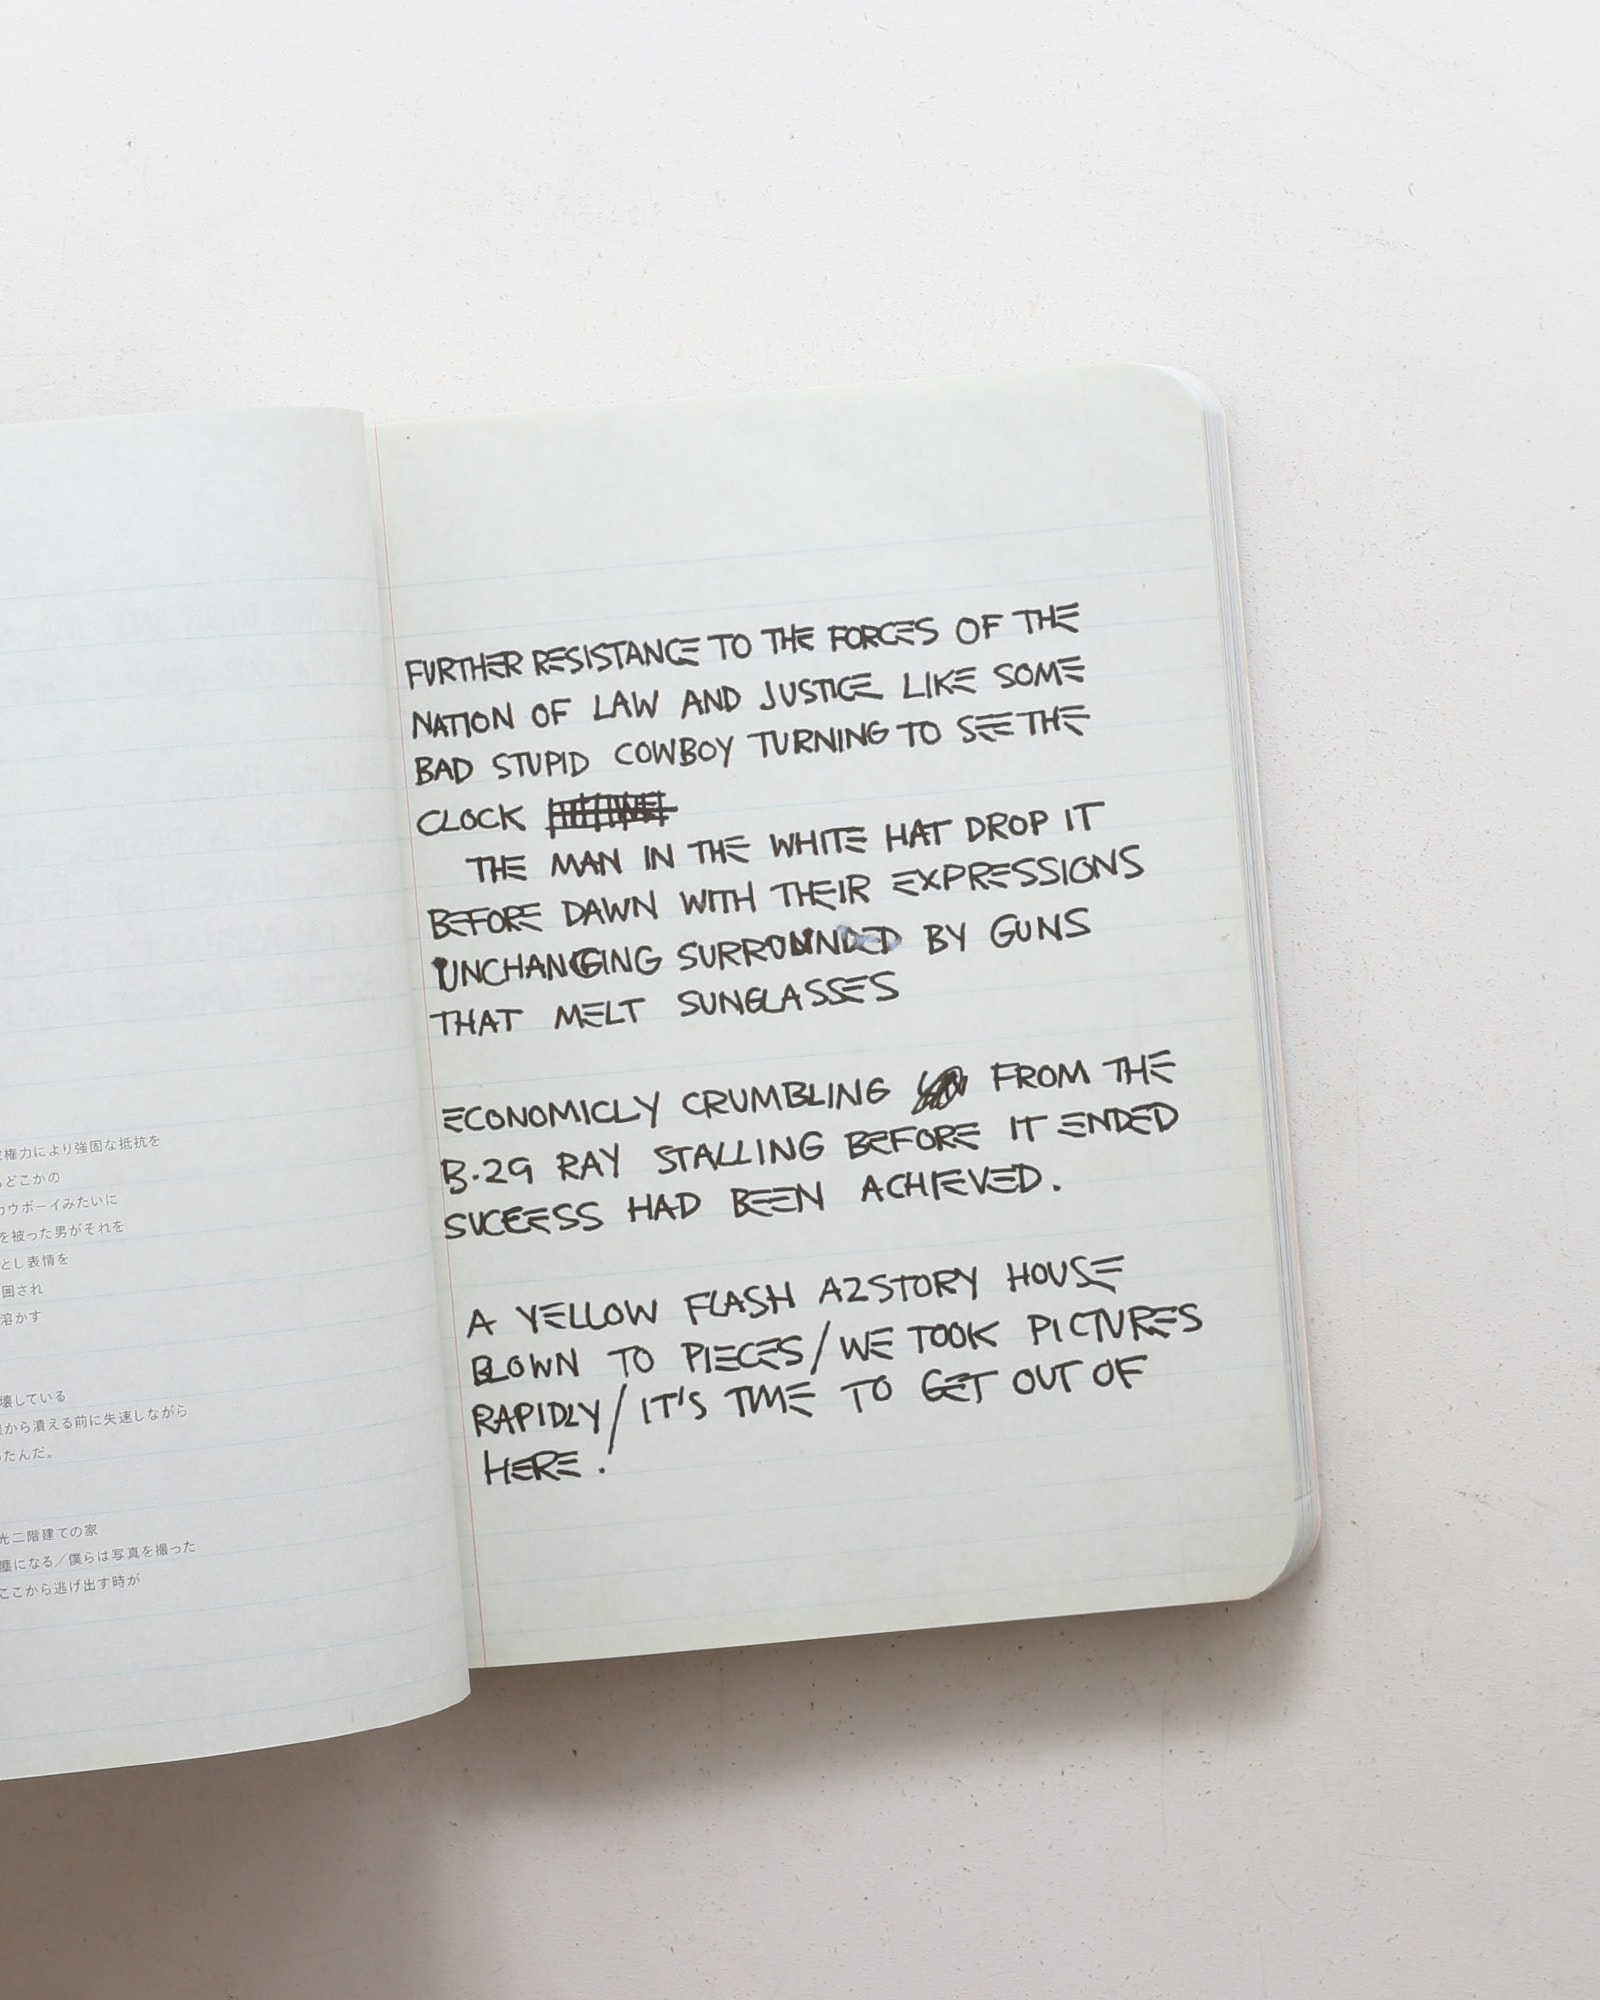 権力により強固な抵抗を
どこかの
カウボーイみたいに
を被った男がそれを
とし表情を
囲され
溶かす
壊している
から潰える前に失速しながら
たんだ。
光二階建ての家
塵になる／僕らは写真を撮った
ここから逃げ出す時が
FURTHER RESISTANCE TO THE FORCES OF THE
NATION OF LAW AND JUSTICE LIKE SOME
BAD STUPID COWBOY TURNING TO SEE THE
CLOCK
THE MAN IN THE WHITE HAT DROP IT
BEFORE DAWN WITH THEIR EXPRESSIONS
UNCHANGING SURROUNDED BY GUNS
THAT MELT SUNGLASSES
ECONOMICLY CRUMBLING FROM THE
B.29 RAY STALLING BEFORE IT ENDED
SUCESS HAD BEEN ACHIEVED.
A YELLOW FLASH A2STORY HOUSE
BLOWN TO PIECES/WE TOOK PICTURES
RAPIDLY/IT'S TIME TO GET OUT OF
HERE.